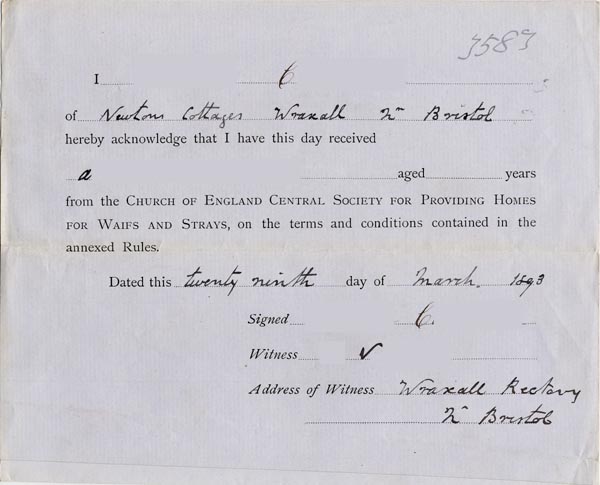 3583
I C
of Newtons Cottages Wraxall Nr Bristol
hereby acknowledge that I have this day received
a aged years
from the CHURCH OF ENGLAND CENTRAL SOCIETY FOR PROVIDING HOMES
FOR WAIFS AND STRAYS, on the terms and conditions contained in the
annexed Rules.
Dated this twenty ninth day of March. 1893
Signed C.
Witness V
Address of Witness Wraxall Rectory
Nr Bristol